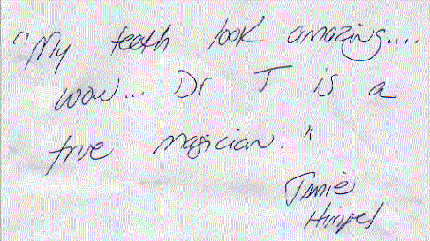 "My teeth look amazing....
wow... Dr T is a
true magician."